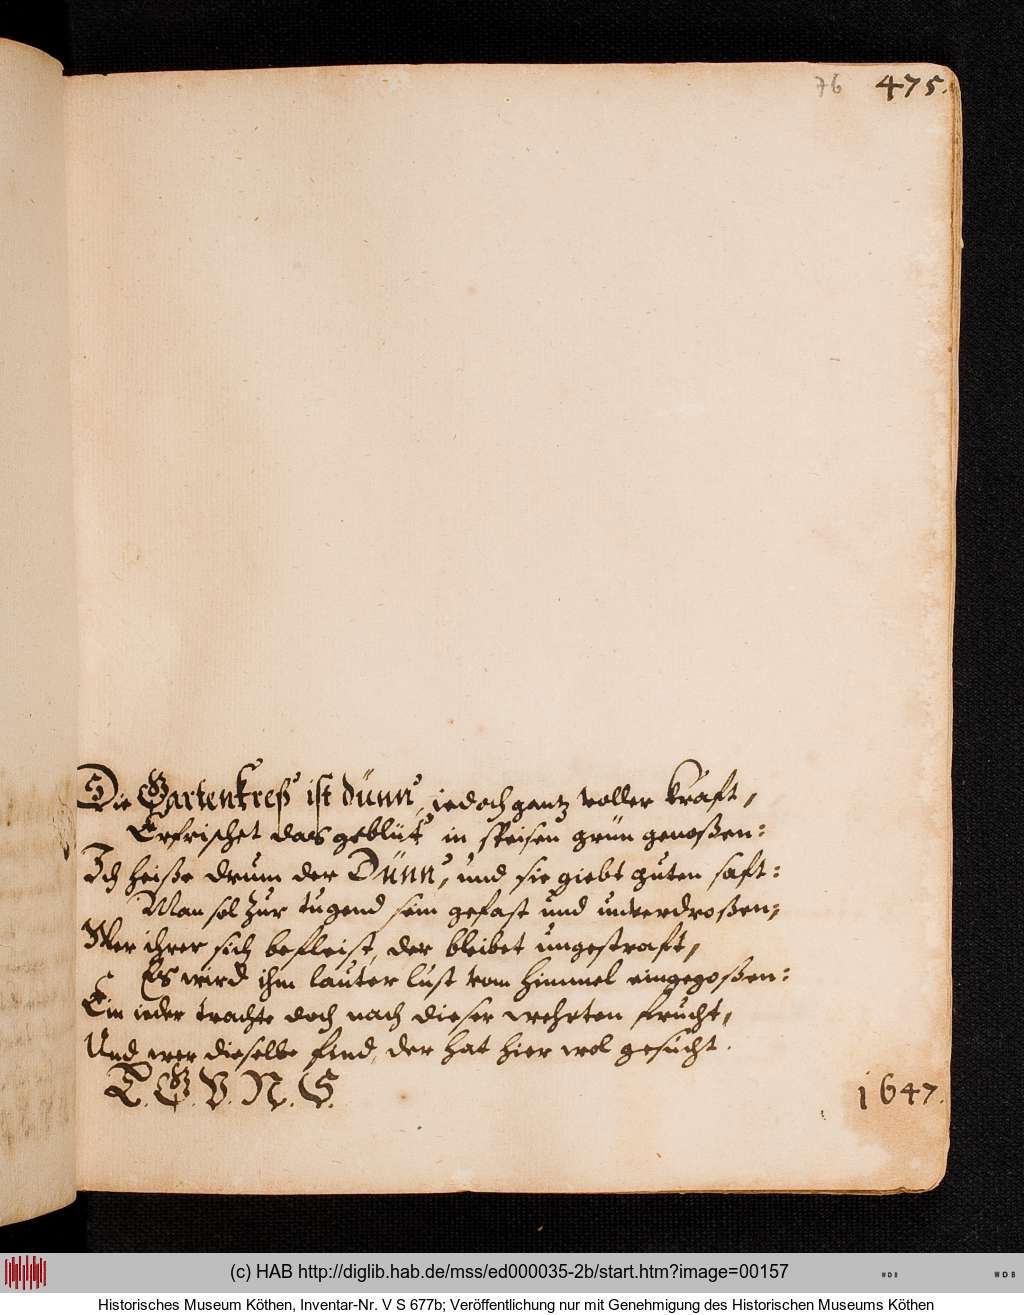 76 475.
Die Gartenkreß ist dünn, iedoch gantz voller kraft,
Erfrischet das geblüt in speisen grün genoßen:
Ich heiße drum der Dünn, und sie giebt guten saft:
Man sol zur tugend sein gefast und unverdroßen,
Wer ihrer sich befleist, der bleibet ungestraft,
Es wird ihm lauter lust vom himmel eingegoßen:
Ein ieder trachte doch nach dieser wehrten frucht,
Und wer dieselbe find, der hat hier wol gesucht.
E. G. V. N. S.
1647.
(c) HAB http://diglib.hab.de/mss/ed000035-2b/start.htm?image=00157
WDB
WDB
Historisches Museum Köthen, Inventar-Nr. V S 677b; Veröffentlichung nur mit Genehmigung des Historischen Museums Köthen